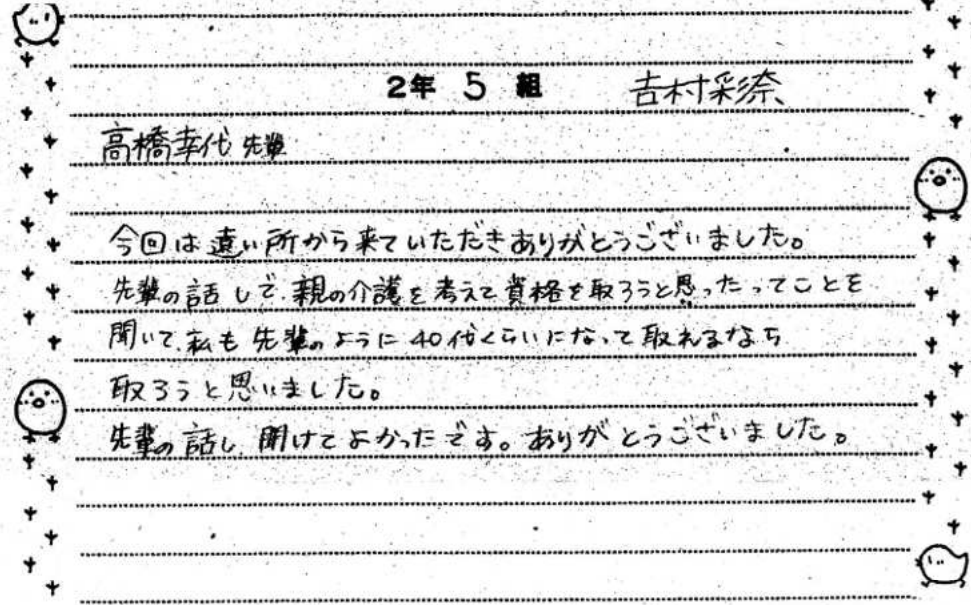 2年 5 組 吉村彩奈
高橋幸代 先輩
今回は遠い所から来ていただきありがとうございました。
先輩の話しで、親の介護を考えて資格を取ろうと思ったってことを
聞いて、私も先輩のように40代くらいになって取れるなら
取ろうと思いました。
先輩の話し、聞けてよかったです。ありがとうございました。